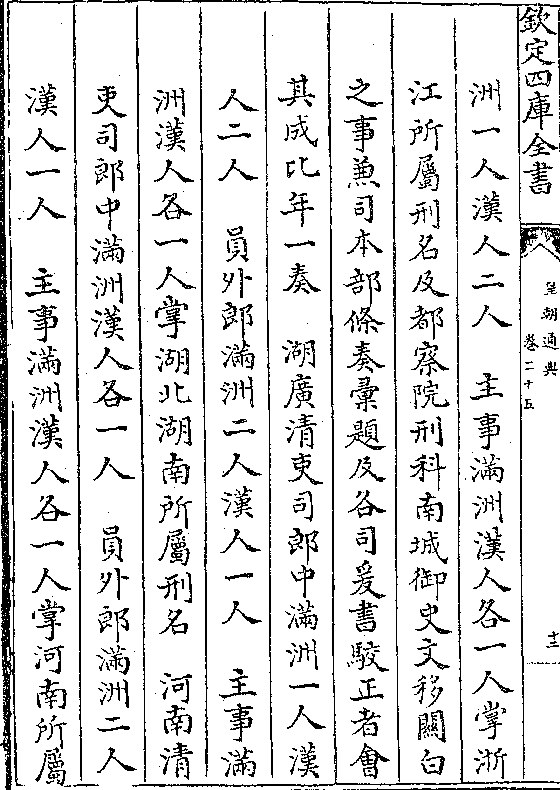 欽定四庫全書
皇朝通典
卷二十五
十三
洲一人漢人二人　主事滿洲漢人各一人掌浙
江所屬刑名及都察院刑科南城御史文移關白
之事兼司本部條奏彙題及各司爰書駮正者會
其成比年一奏　湖廣清吏司郎中滿洲一人漢
人二人　員外郎滿洲二人漢人一人　主事滿
洲漢人各一人掌湖北湖南所屬刑名　河南清
吏司郎中滿洲漢人各一人　員外郎滿洲二人
漢人一人　主事滿洲漢人各一人掌河南所屬